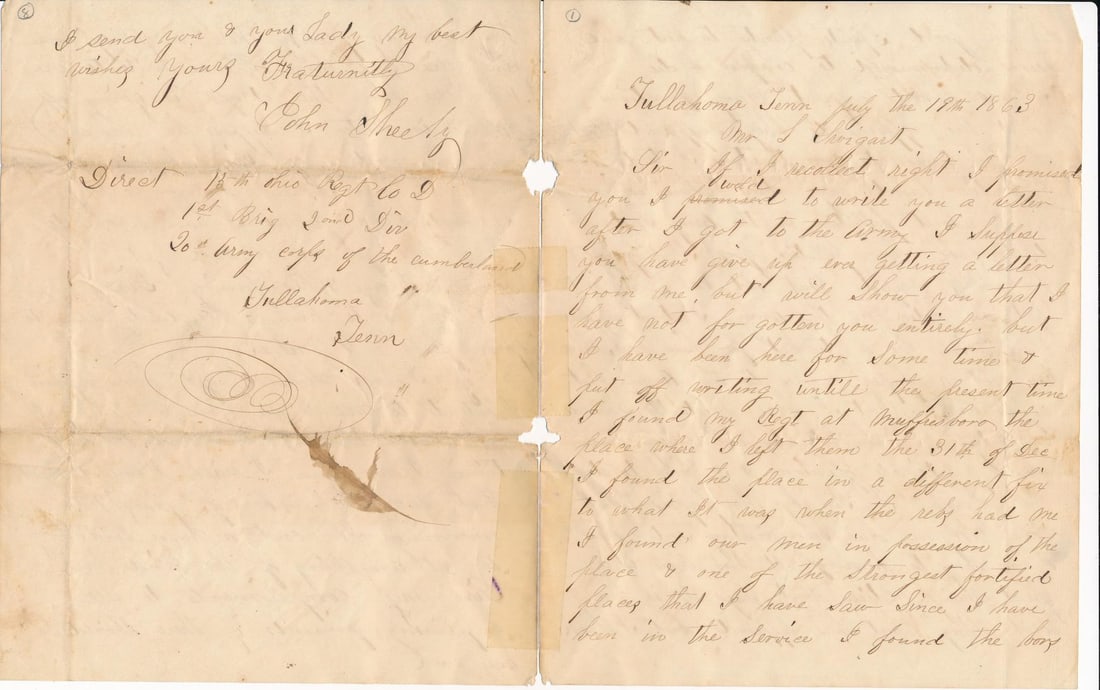 3
I send you & your Lady my best
wishes Yours Fraturnitly
John Sheely
Direct 15th Ohio Regt Co D
1st Brig 2ond Div
20st Army corps of the cumberland
Tullahoma
Tenn
1
Tullahoma Tenn July the 19th 1863
Mr S
Sir If I recollect right I promised
you I promised would to write you a letter
after I got to the army I suppose
you have give up ever getting a letter
from me, but will show you that I
have not for gotten you entirely. but
I have been here for some time &
put off writing untill the present time
I found my Regt at Muffrisboro the
place where I left them the 31th of Dec
I found the place in a different fix
to what It was when the rebs had me
I found our men in possession of the
place & one of the strongest fortified
places that I have saw since I have
been in the service I found the boys